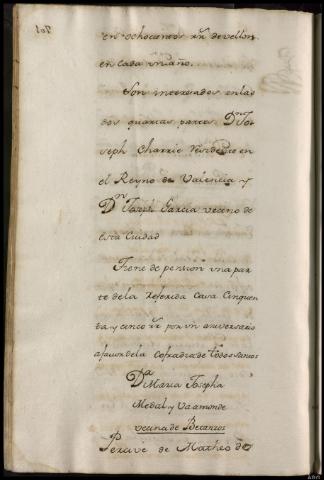 en ochocientos rr.ˢ de vellon
en cada vn año.
Son interesados en las
dos quartas partes Dⁿ Jo-
seph Charrie residente en
el Reyno de Valencia y
Dⁿ Joseph Garcia vecino de
esta Ciudad
Tiene de pension vna par-
te de la referida Casa Cinquen
ta y cinco rr.ˢ por vn aniversario
a favor de la cofradia de todos santos
Dª Maria Josepha
Medal y Vaamonde
vecina de Betanzos
Percive de Matheo de